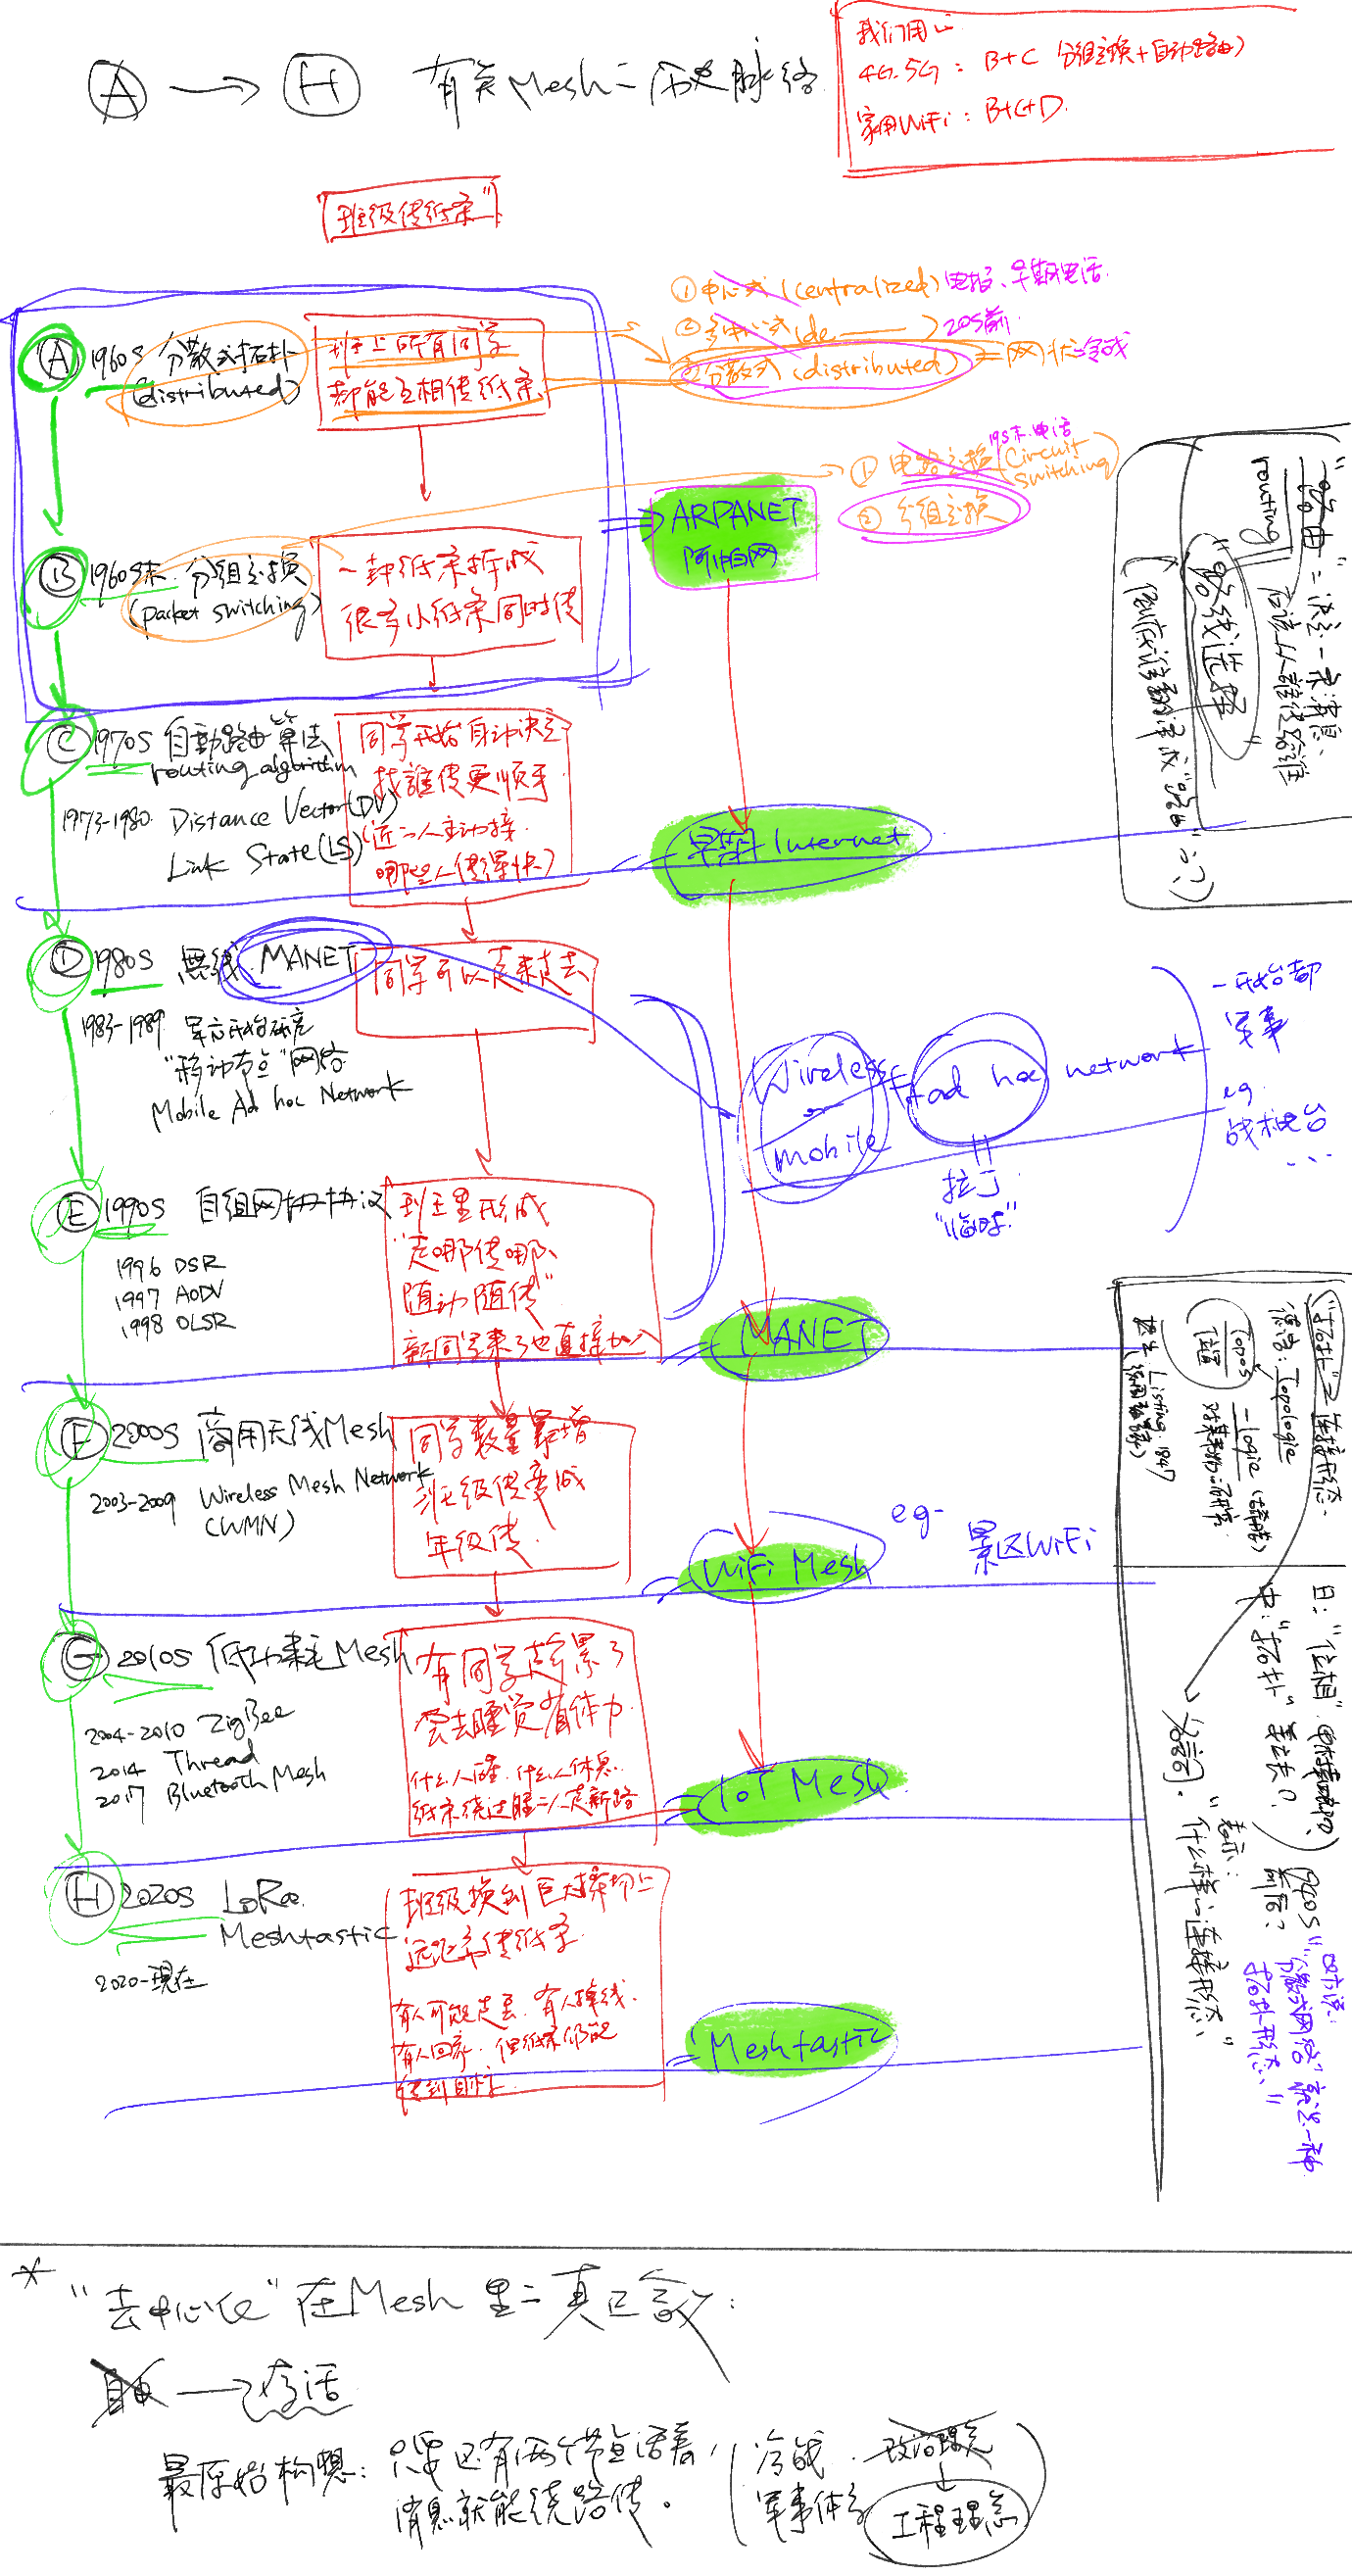 Ⓐ → Ⓗ 有关Mesh二历史脉络
我们用二
4G.5G: B+C 分组交换+自动路由)
家用WiFi: B+C+D.
"班级传纸条"
Ⓐ 1960s 分散式拓扑
(distributed)
班上所有同学
都能互相传纸条
① 中心式 (centralized) 电报、早期电话
② 多中心式 (de——) 20s前
③ 分散式 (distributed) = 网状
① 电路交换 (circuit switching)
19s末.电话
② 分组交换
Ⓑ 1960s末. 分组交换
(packet switching)
一封纸条拆成
很多小纸条同时传
ARPANET
阿帕网
"路由" = 决定一条消息、
routing 应该从誰传给谁
"路线选择"
Ⓒ 1970s 自動路由算法
routing algorithm
1973-1980. Distance Vector(DV)
Link State(LS)
同学开始自动决定
找誰传更顺手
(近二人主动接
哪些人传得快)
早期 Internet
Ⓓ 1980s 無线 MANET
1983-1989. 军方开始研究
"移动节点"网络
Mobile Ad hoc Network
同学可以走来走去
Wireless
mobile
ad hoc network
拉丁
"临时"
一开始都
军事
eg.
战术电台
...
Ⓔ 1990s 自组网协协议
1996 DSR
1997 AODV
1998 OLSR
班上里形成
"走哪传哪、
随动随传"
新同学来了也直接加入
MANET
"拓扑" = 连接形态.
德语: Topologie
Topos
位置
-logie
Listing. 1847
Ⓕ 2000s 商用无线Mesh
2003-2009 Wireless Mesh Network
(WMN)
同学数量暴增
班级传变成
年级传.
WiFi Mesh
eg- 景区WiFi
Ⓖ 2010s 低功耗毛Mesh
2004-2010 ZigBee
2014 Thread
2017 Bluetooth Mesh
有同学走累了
会去睡觉省体力.
什么人醒. 什么人休息.
纸条绕过睡二人走新路
IoT Mesh
日: "位相"
中: "拓扑"
1940s前后?
台词.
表示:
"什么样二连接形态"
"分散式网络"就是一种
拓扑形态"
Ⓗ 2020s LoRa
Meshtastic
2020-現在
班级换到巨大操场上
远距离传纸条.
有人可能走丢. 有人掉线.
有人回家. 但纸条仍能
传到目标.
Meshtastic
* "去中心化"在Mesh里二真正含义:
自由 → 存活
最原始构想: 只要还有两个节点活着,
消息就能绕路传。
(冷战. 政治理念
军事体系 工程理念)